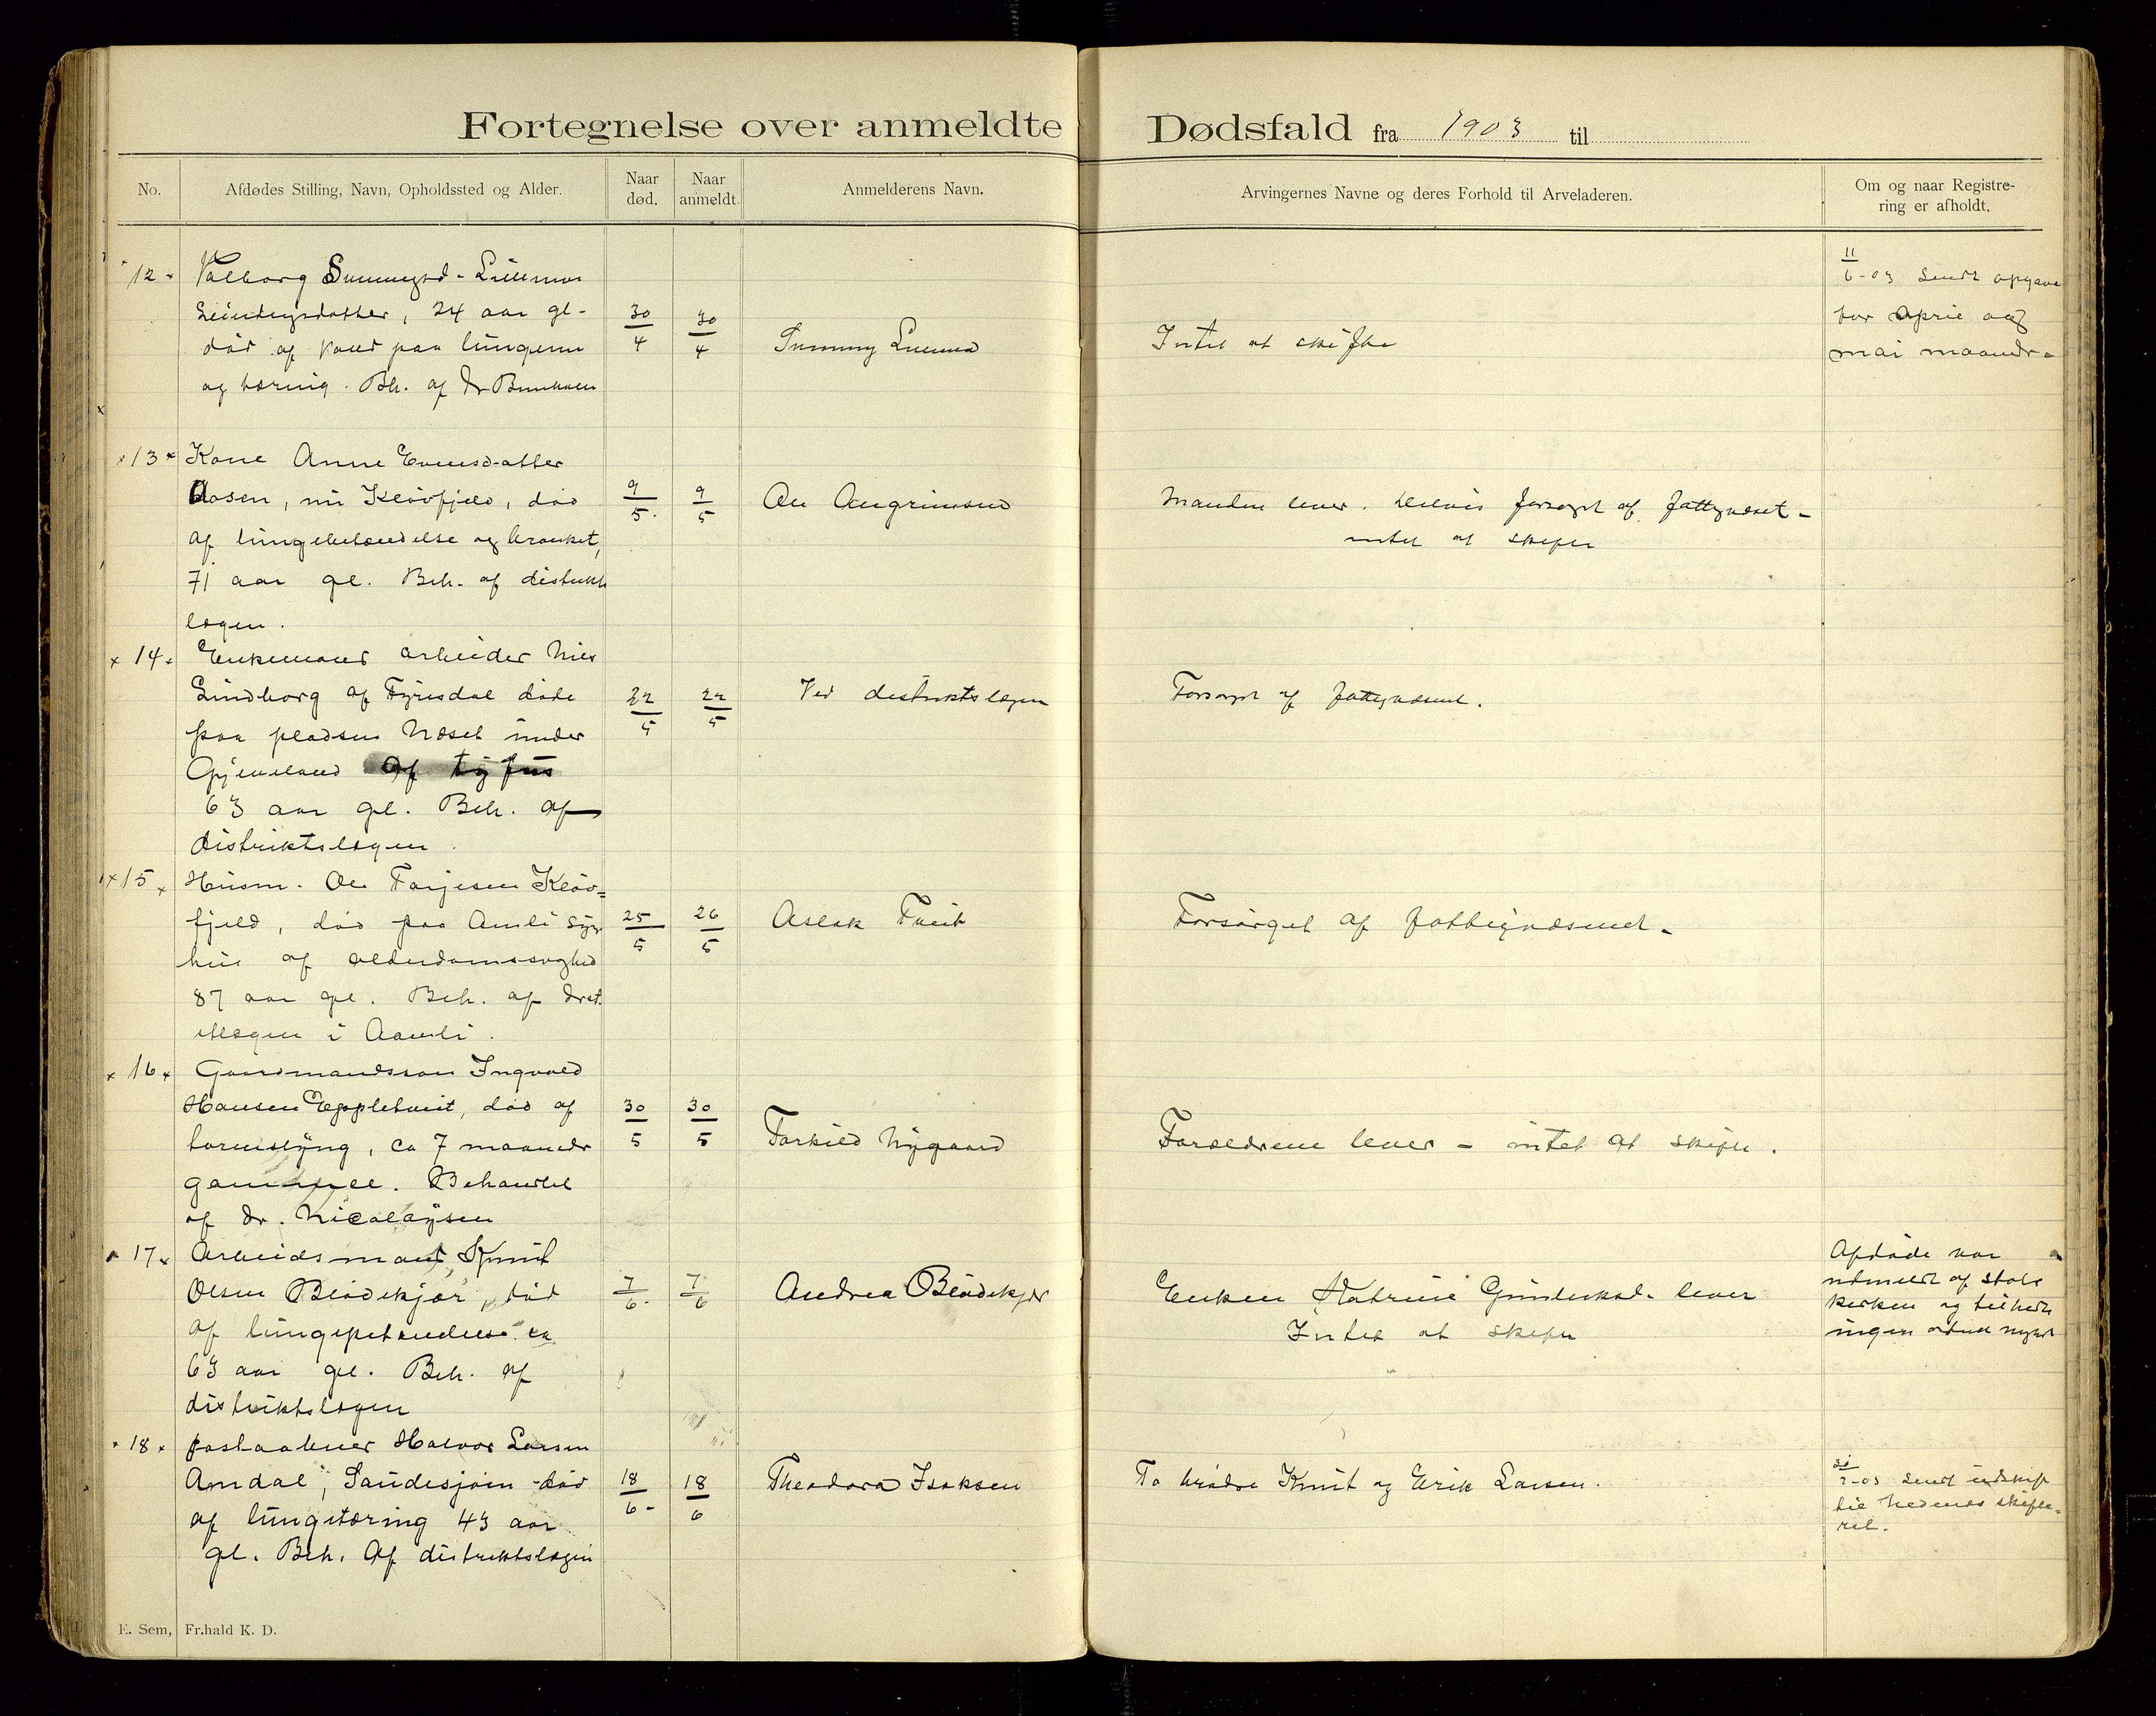 Fortegnelse over anmeldte Dødsfald fra 1903 til
No.
Afdødes Stilling, Navn, Opholdssted og Alder.
Naar død.
Naar anmeldt.
Anmelderens Navn.
Arvingernes Navne og deres Forhold til Arveladeren.
Om og naar Registrering er afholdt.
12
Valborg
24 aar gl.
død af paa lungerne
og tæring. Beh. af Dr
30/4
30/4
Intet at skifte
11/6-03 Sendt opgave
for april og
mai maaneder
13
Kone Anne Evensdatter
Aasen, ni Kløvfjeld, død
af lungebetændelse og bronket,
71 aar gl. Beh. af distrikts
lægen.
9/5
9/5
Ole Augrimsen
Manden lever. Delvis forsørget af fattigvæset -
intet at skifte
14
Enkemand arbeider Nils
Lindborg af Fyrisdal døde
paa pladsen Næset under
Gjeveland af tyfus
63 aar gl. Beh. af
distriktslægen.
22/5
22/5
Ved distriktslægen
Forsørget af fattigvæsenet.
15
Husm. Ole Tarjesen Kløv=
fjeld, død paa Amli syge
hus af alderdomssvaghed
87 aar gl. Beh. af distr.
lægen i Aamli.
25/5
26/5
Aslak Tveit
Forsørget af fattigvæsenet.
16
Gaardmandssøn Ingvald
Hansen Eppletveit, død af
tarmslyng, ca 7 maaneder
gammel. Behandlet
af Dr. Nicolaysen
30/5
30/5
Torkild Nygaard
Forældrene lever - intet at skifte.
17
Arbeidsmand Knut
Olsen Blødekjær, død
af lungebetændelse ca
63 aar gl. Beh. af
distriktslægen
7/6
7/6
Andrea Blødekjær
Enken Katrine lever
Intet at skifte
Afdøde var
udmeldt af stats
kirken og tilhørte
ingen
18
postaabner Halvor Larsen
Amdal, Sandesjøen død
af lungetæring 43 aar
gl. Beh. af distriktslægen
18/6
18/6
Theodora Isaksen
To brødre Knut og Erik Larsen.
Sendt udskrift
til Nedenes skifte=
ret.
E. Sem, Fr.hald K. D.